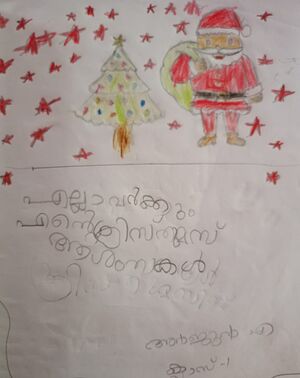 എല്ലാവർക്കും
എന്റെ ക്രിസ്തുമസ്
ആശംസകൾ
അർജ്ജുൻ എ
ക്ലാസ്-1